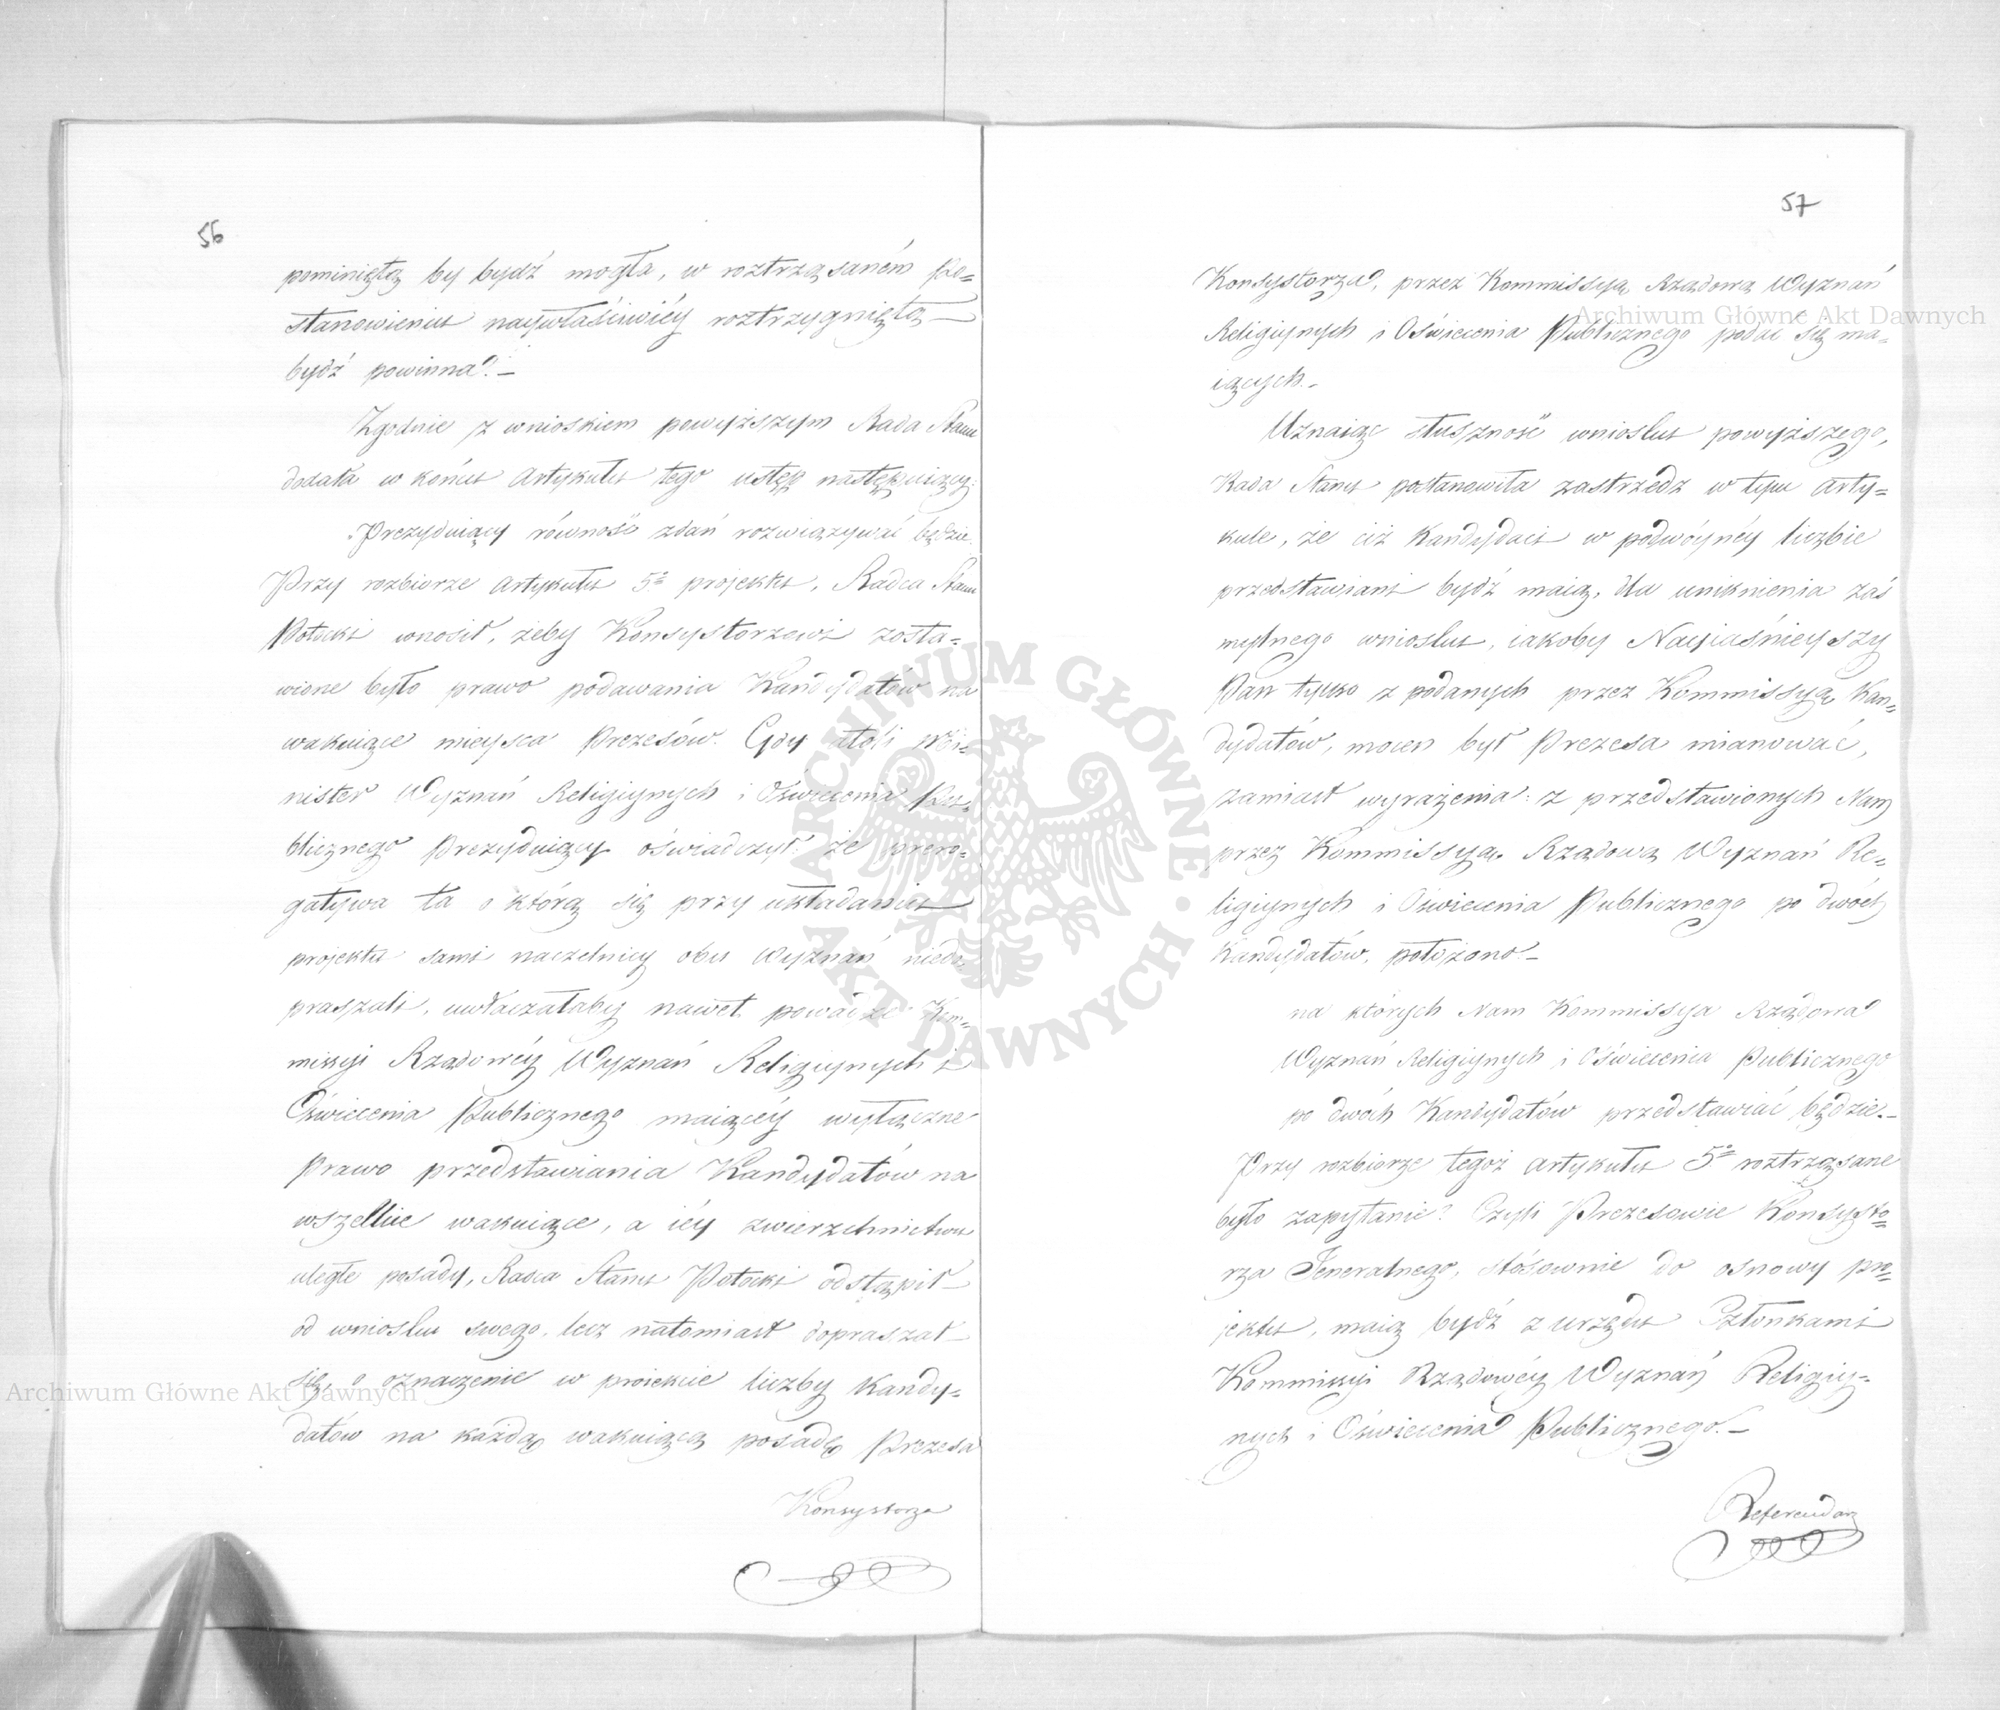 56
pominiętą by bydź mogła, w roztrząsaném Po=
stanowieniu naywłaściwiéy roztrzygniętą
bydź powinna.—
Zgodnie z wnioskiem powyższym Rada Stanu
dodała w końcu Artykułu tego ustęp następuiący:
Prezyduiący równość zdań rozwiązywać będzie.
Przy rozbiorze Artykułu 5º projektu, Radca Stanu
Potocki wnosił, żeby Konsystorzowi zosta=
wione było prawo podawania Kandydatów na
wakuiące mieysca Prezesów. Gdy atoli Mi=
nister Wyznań Religiynych i Oświecenia Pu=
blicznego Prezyduiący oświadczył: że prero=
gatywa ta o którą się przy układaniu
projektu sami naczelnicy obu Wyznań niedo=
praszali, uwłaczałaby nawet powadze Kom=
missyi Rządowéy Wyznań Religiynych i
Oświecenia Publicznego maiącéy wyłączne
Prawo przedstawiania Kandydatów na
wszelkie wakuiące, a iéy zwierzchnictwu
uległe posady, Radca Stanu Potocki odstąpił
od wniosku swego, lecz natomiast dopraszał
się, o oznaczenie w proiekcie liczby Kandy=
datów na każdą wakuiącą posadę Prezesa
Konsystorza
57
Konsystorza, przez Kommissyą Rządową Wyznań
Religiynych i Oświecenia Publicznego podać się ma=
iących.—
Uznaiąc słuszność wniosku powyższego,
Rada Stanu postanowiła zastrzedz w tym Arty=
kule, że ciż Kandydaci w podwóynéy liczbie
przedstawiani bydź maią, dla uniknienia zaś
mylnego wniosku, iakoby Nayiaśnieyszy
Pan tylko z podanych przez Kommissyą Kan=
dydatów, mocen był Prezesa mianować,
zamiast wyrażenia: z przedstawionych Nam
przez Kommissyą Rządową Wyznań Re=
ligiynych i Oświecenia Publicznego po dwóch
Kandydatów, położono—
na których Nam Kommissya Rządowa
Wyznań Religiynych i Oświecenia Publicznego
po dwóch Kandydatów przedstawiać będzie.—
Przy rozbiorze tegoż Artykułu 5º roztrząsane
było zapytanie? Czyli Prezesowie Konsysto=
rza Jeneralnego, stósownie do osnowy pro=
jektu, maią bydź z urzędu Członkami
Kommissyi Rządowéy Wyznań Religiy=
nych i Oświecenia Publicznego.—
Referendarz
ARCHIWUM GŁÓWNE AKT DAWNYCH
Archiwum Główne Akt Dawnych
Archiwum Główne Akt Dawnych